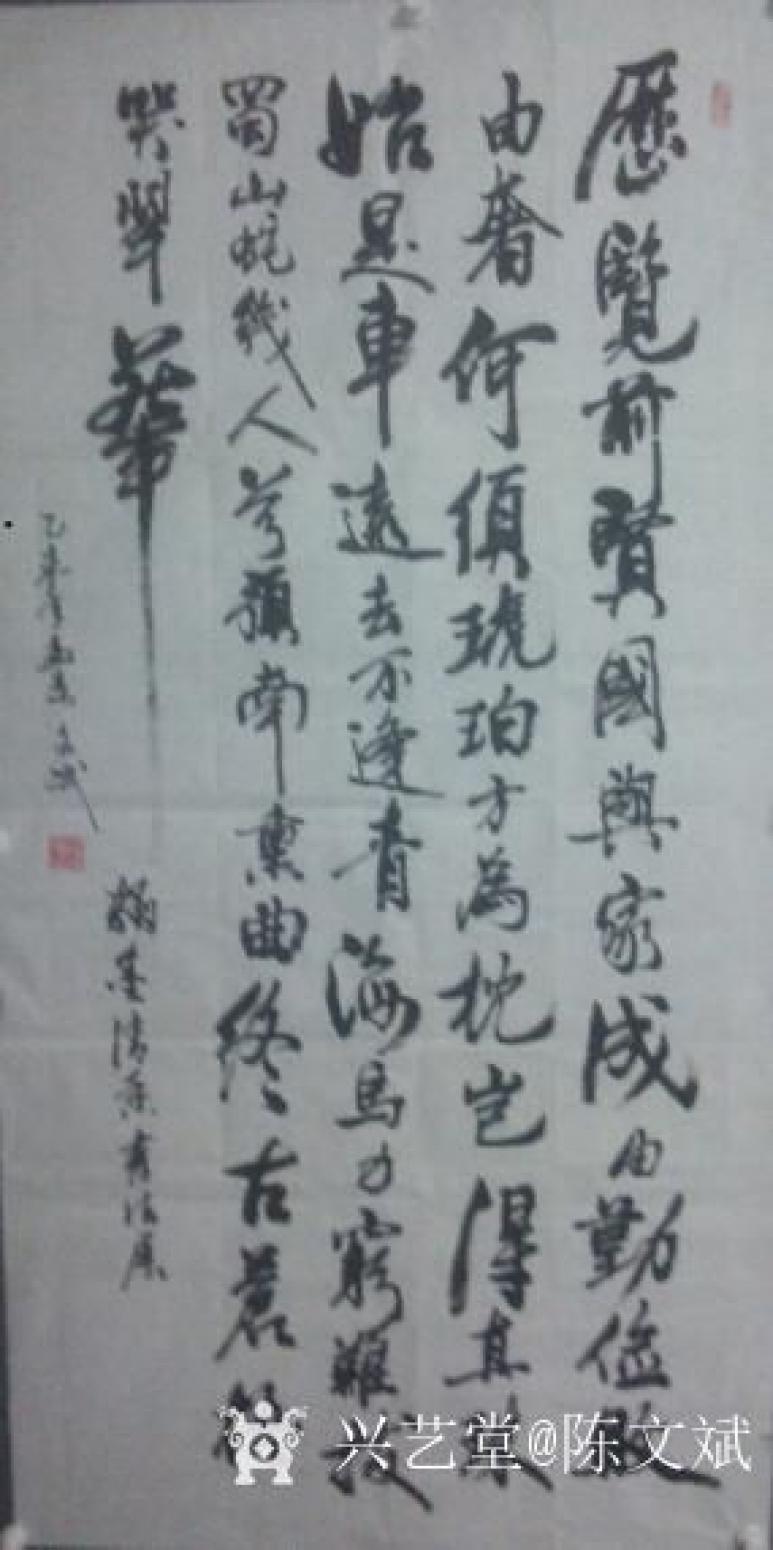 歷覽前賢國與家成由勤儉
由奢何須琥珀方為枕豈得真珠
始是車遠去不逢青海馬力窮難拔
蜀山蛇幾人曾預南熏曲終古蒼
哭翠華
乙未年文斌
兴艺堂@陈文斌